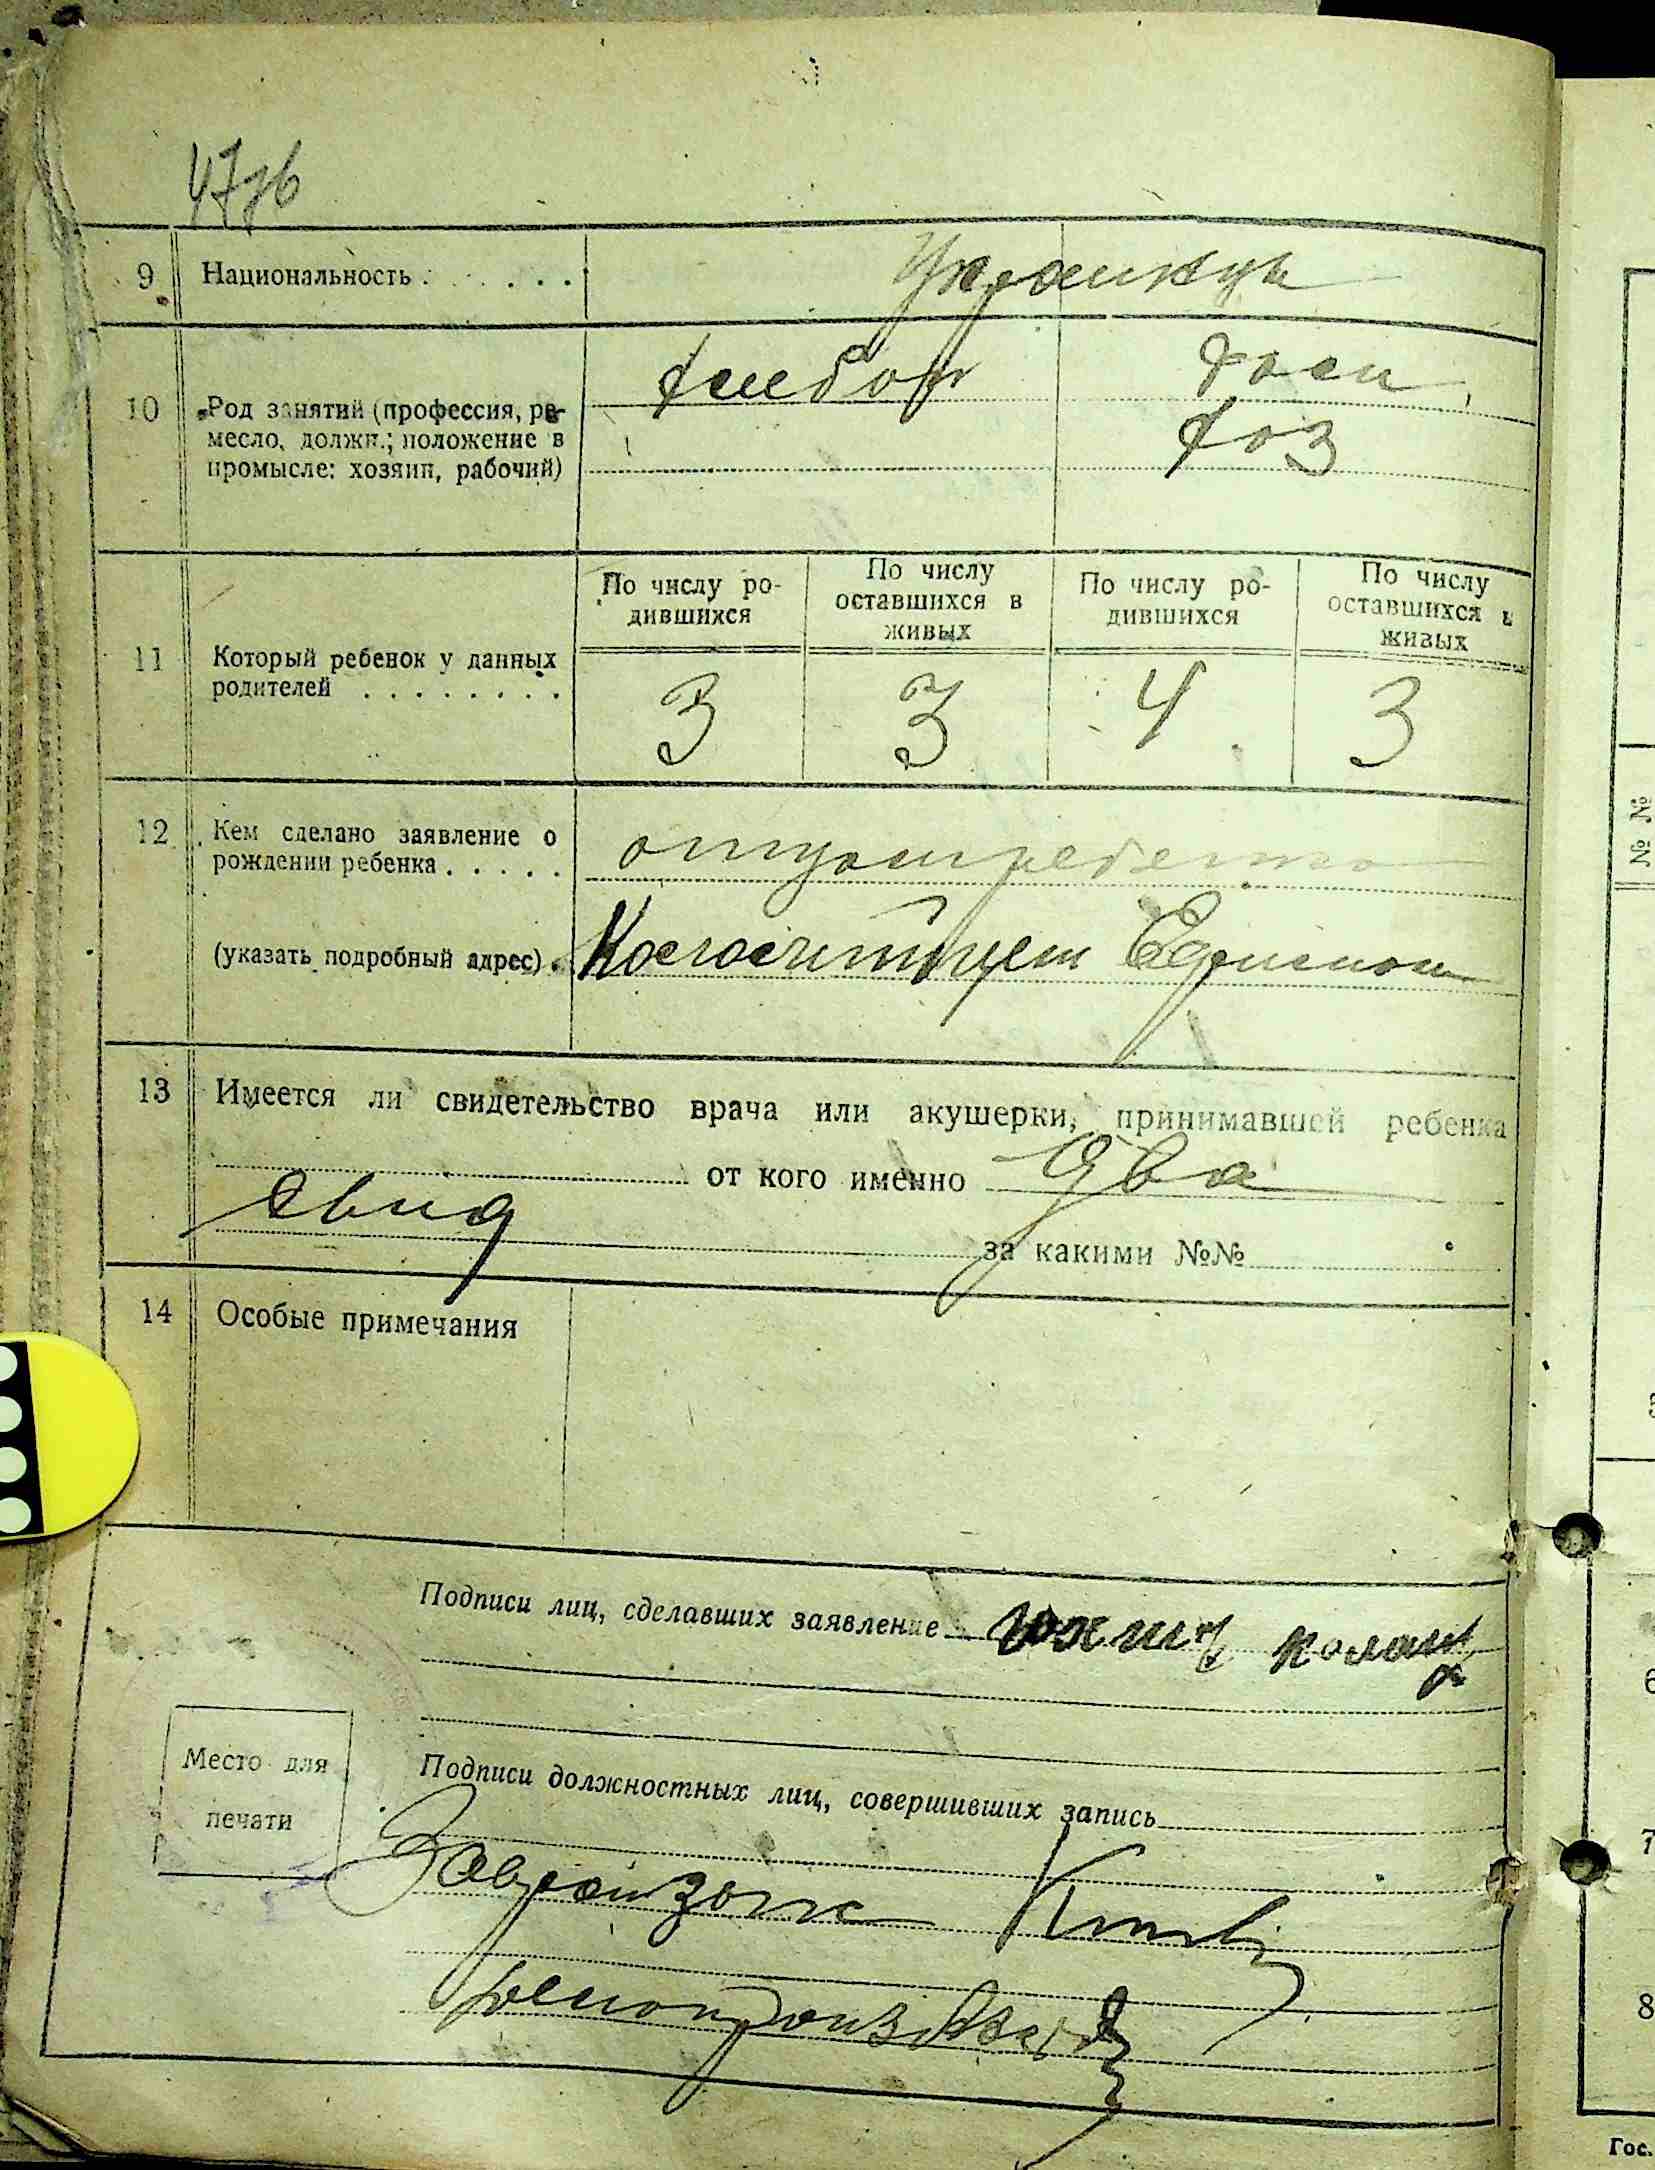 9 Национальность . . . . . . Украинцы
10 Род занятий (профессия, ре-
месло, должн.; положение в
промысле: хозяин, рабочий)
хлебор дом
хоз
11 Который ребенок у данных
родителей . . . . . . . .
По числу ро-
дившихся
По числу
оставшихся в
живых
По числу ро-
дившихся
По числу
оставшихся в
живых
3 3 4 3
12 Кем сделано заявление о
рождении ребенка . . . . .
отцом ребенка
(указать подробный адрес) .
13 Имеется ли свидетельство врача или акушерки, принимавшей ребенка
от кого именно два
свид
за какими №№
14 Особые примечания
Подписи лиц, сделавших заявление
Место для
печати
Подписи должностных лиц, совершивших запись
№ №
6
7
8
Гос.